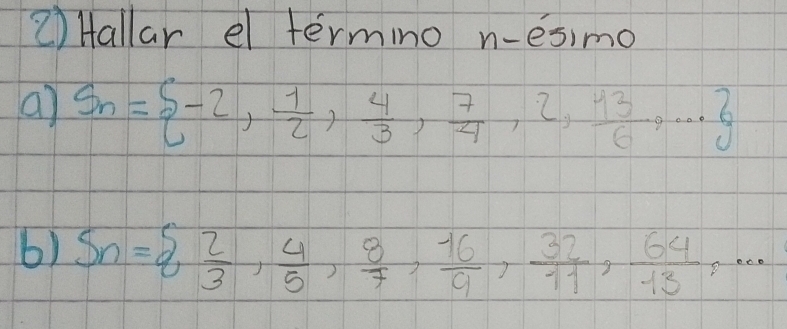 2) Hallar el término n-ésimo
a) Sn = {-2, 1/2, 4/3, 7/4, 2, 13/6, ... }
b) Sn = { 2/3, 4/5, 8/7, 16/9, 32/11, 64/13, ...